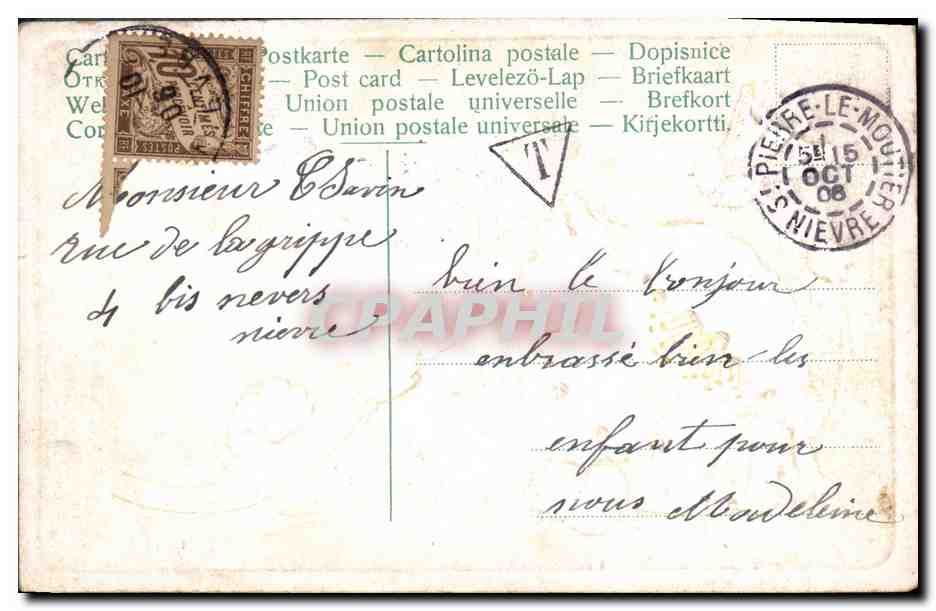 Postkarte — Cartolina postale — Dopisnice
— Post card — Levelező-Lap — Briefkaart
Union postale universelle — Brefkort
— Union postale universale — Kirjekortti,
CHIFFRE TAXE
POSTES
10
T
ST PIERRE-LE-MOUTIER
5E 15
OCT
06
NIEVRE
Monsieur Savin
rue de la grippe
4 bis nevers
nievre
bien le bonjour
enbrassé bien les
enfant pour
nous Madeleine
CPAPHIL